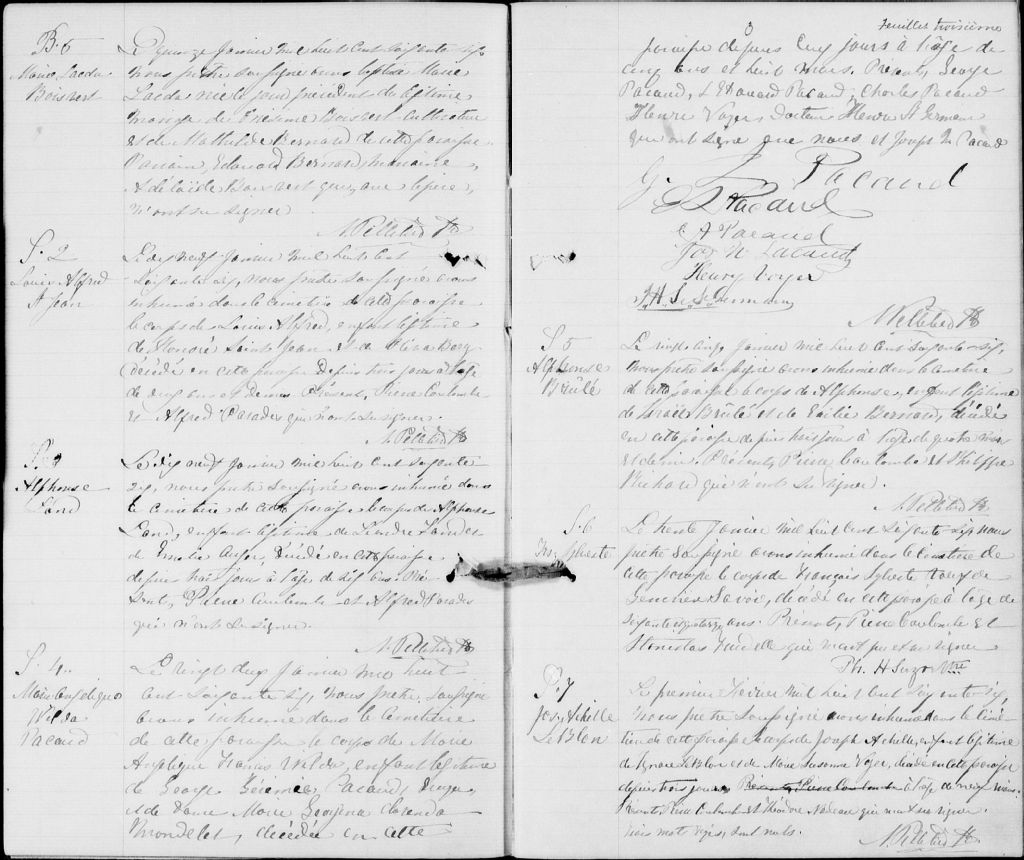 B. 5
Marie Laeda
Boisvert
Le quinze Janvier mil huit cent soixante-six
nous prêtre soussigné avons baptisé Marie
Laeda née le jour précédent du légitime
mariage de Boisvert cultivateur
et de Mathilde Bernard de cette paroisse
Parrain, Edouard Bernard, marraine,
Adélaïde Boisvert qui, ainsi que le père,
n'ont su signer
N. Pelletier Ptr
S. 2
Louis Alfred
St Jean
Le dix neuf Janvier mil huit cent
soixante six, nous prêtre soussigné avons
inhumé dans le cimetière de cette paroisse
le corps de Louis Alfred, enfant légitime
de Honoré Saint Jean et de Oliva
décédé en cette paroisse depuis trois jours à l'âge
de deux ans et demi. Présents, Pierre Coulombe
et Alfred Paradis qui n'ont su signer.
N. Pelletier Ptr
S. 3
Alphonse
Land
Le dix neuf Janvier mil huit cent soixante-
six, nous prêtre soussigné avons inhumé dans
le cimetière de cette paroisse le corps de Alphonse
Land, enfant légitime de Léandre Land et
de Emélie Auger, décédé en cette paroisse
depuis trois jours à l'âge de six ans. Pré-
sents, Pierre Coulombe et Alfred Paradis
qui n'ont su signer.
N. Pelletier Ptr
S. 4.
Marie Angélique
Wilda
Pacaud
Le vingt deux Janvier mil huit
cent soixante six, nous prêtre soussigné
avons inhumé dans le cimetière
de cette paroisse le corps de Marie
Angélique Wilda, enfant légitime
de George Jérémie Pacaud,
et de Dame Marie Georgina Clorinda
Mondelet, décédée en cette
3
feuillet troisième
paroisse depuis cinq jours à l'âge de
cinq ans et huit mois. Présents, George
Pacaud, Edouard Pacaud, Charles Pacaud
Henri Voyer Docteur Henri St Germain
qui ont signé avec nous et Joseph N. Pacaud
G. J. Pacaud
E. L. Pacaud
C A Pacaud
Jos N. Pacaud
Henry Voyer
J. H. L. St. Germain
N. Pelletier Ptr
S. 5
Alphonse
Brûlé
Le vingt cinq Janvier mil huit cent soixante-six,
nous prêtre soussigné avons inhumé dans le cimetière
de cette paroisse le corps de Alphonse, enfant légitime
de Israël Brûlé et de Emélie Bernard, décédé
en cette paroisse depuis trois jours à l'âge de quatre mois
et demi. Présents, Pierre Coulombe et Philippe
Richard qui n'ont su signer.
N. Pelletier Ptr
S. 6
Frs. Sylvestre
Le trente Janvier mil huit cent soixante six nous
prêtre soussigné avons inhumé dans le cimetière de
cette paroisse le corps de François Sylvestre veuf de
Geneviève Savoie, décédé en cette paroisse à l'âge de
soixante ans. Présents, Pierre Coulombe et
Stanislas qui n'ont pu signer
Ph. H Suzor Ptre
S. 7
Josep Achille
LeBlen
Le premier Février mil huit cent soixante-six,
nous prêtre soussigné avons inhumé dans le cime-
tière de cette paroisse le corps de Joseph Achille, enfant légitime
de Ignace LeBlen et de Marie Suzanne Voyer, décédé en cette paroisse
depuis trois jours Présents, Pierre Coulombe à l'âge de neuf mois.
Présents, Pierre Coulombe et Théodore Nadeau qui n'ont su signer
Trois mots rayés, sont nuls.
N. Pelletier Ptr